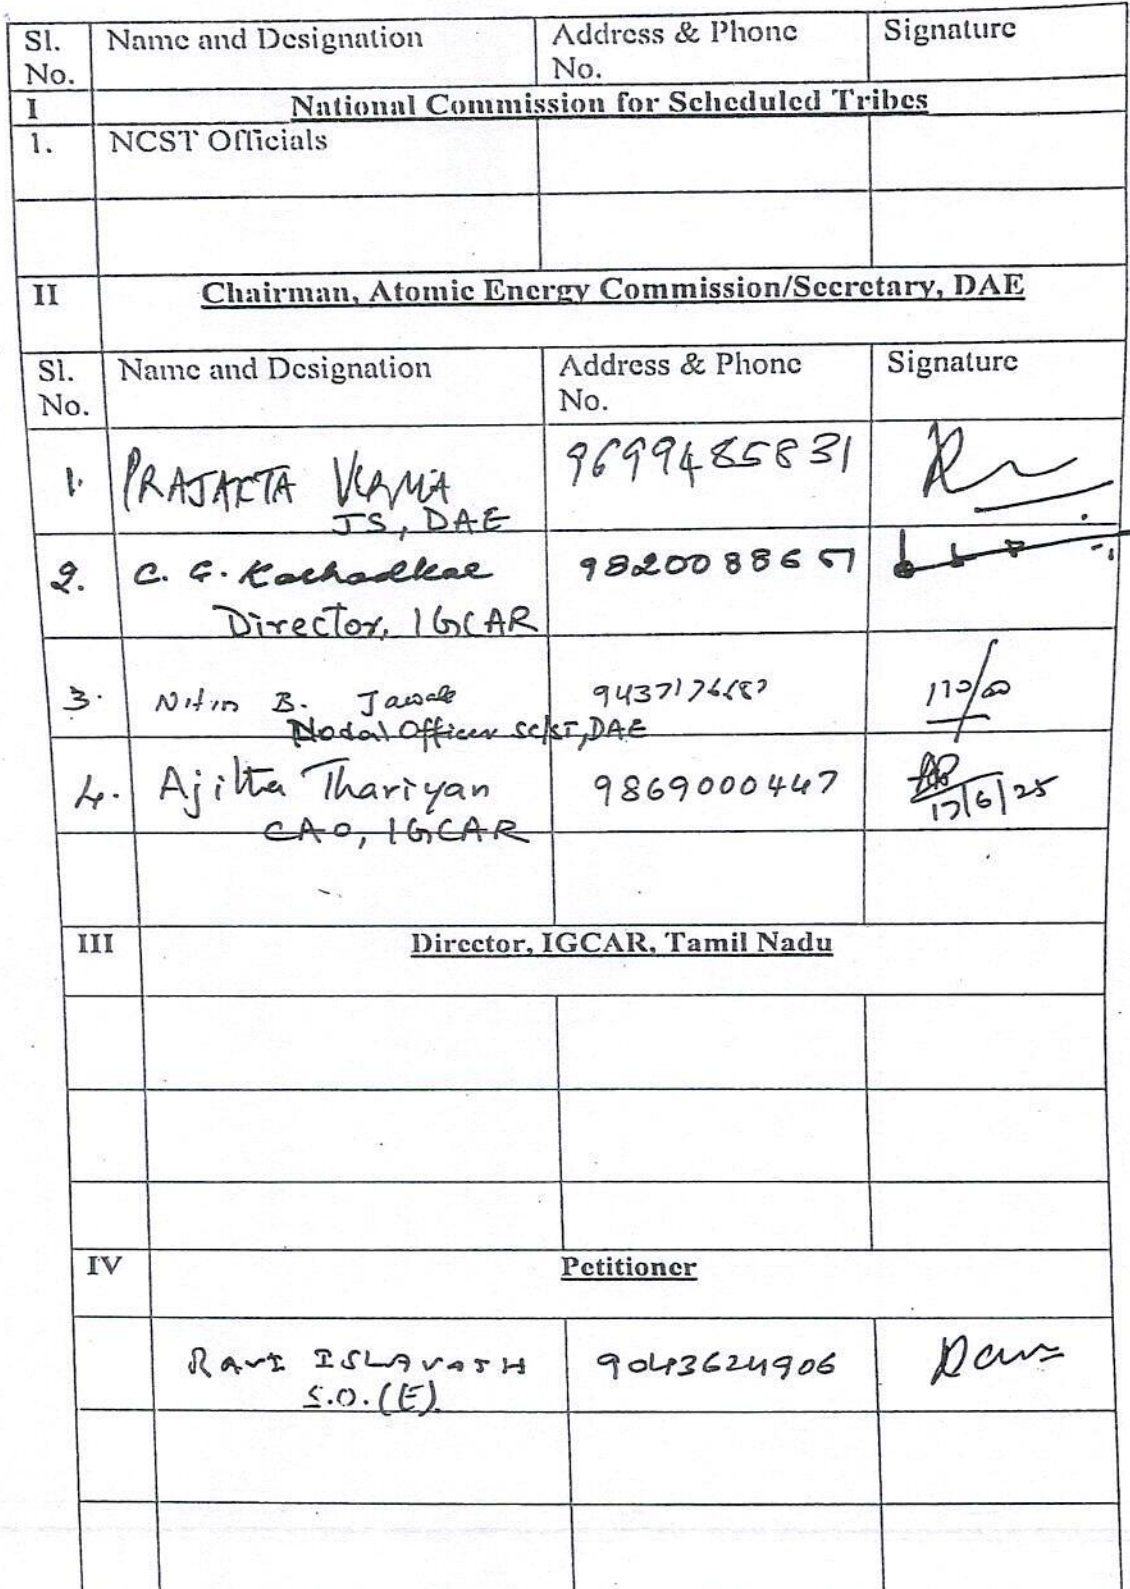 Sl. No. Name and Designation Address & Phone No. Signature
I National Commission for Scheduled Tribes
1. NCST Officials
II Chairman, Atomic Energy Commission/Secretary, DAE
Sl. No. Name and Designation Address & Phone No. Signature
1. PRAJAKTA VERMA 9699485831
JS, DAE
2. C. G. Karhadkar 98200886
Director, IGCAR
3. Nitin B. Jawale
Nodal Officer SC/ST, DAE
4. Ajitha Thariyan 9869000447
CAO, IGCAR 17/6/25
III Director, IGCAR, Tamil Nadu
IV Petitioner
RAVI ISLAVATH 9043624906 Ravi
S.O.(E)